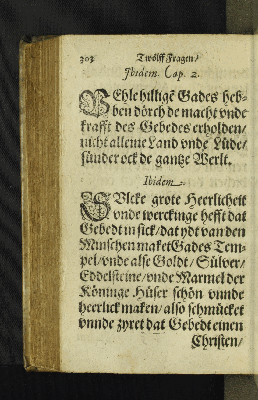 303 Twölff Fragen/
Ibidem. Cap. 2.
Ehle hilligē Gades heb-
ben dörch de macht vnde
krafft des Gebedes erholden/
nicht alleine Land vnde Lüde/
sünder ock de gantze Werlt.
Ibidem.
SUlcke grote Heerlicheit
vnde werckinge hefft dat
Gebedt in sick/ dat ydt van den
Minschen maket Gades Tem-
pel/ vnde alse Goldt/ Sülver/
Eddelsteine/ vnde Marmel der
Köninge Hüser schön vnnde
heerlick maken/ also schmücket
vnnde zyret dat Gebedt einen
Christen/